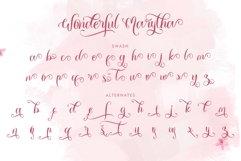 Wonderful Marytha
SWASH
a b c d e f g h i j k l m
n o p q r s t u v w x y z
ALTERNATES
a b d e f g h i j k l m
n o p q r s t u v w x y z